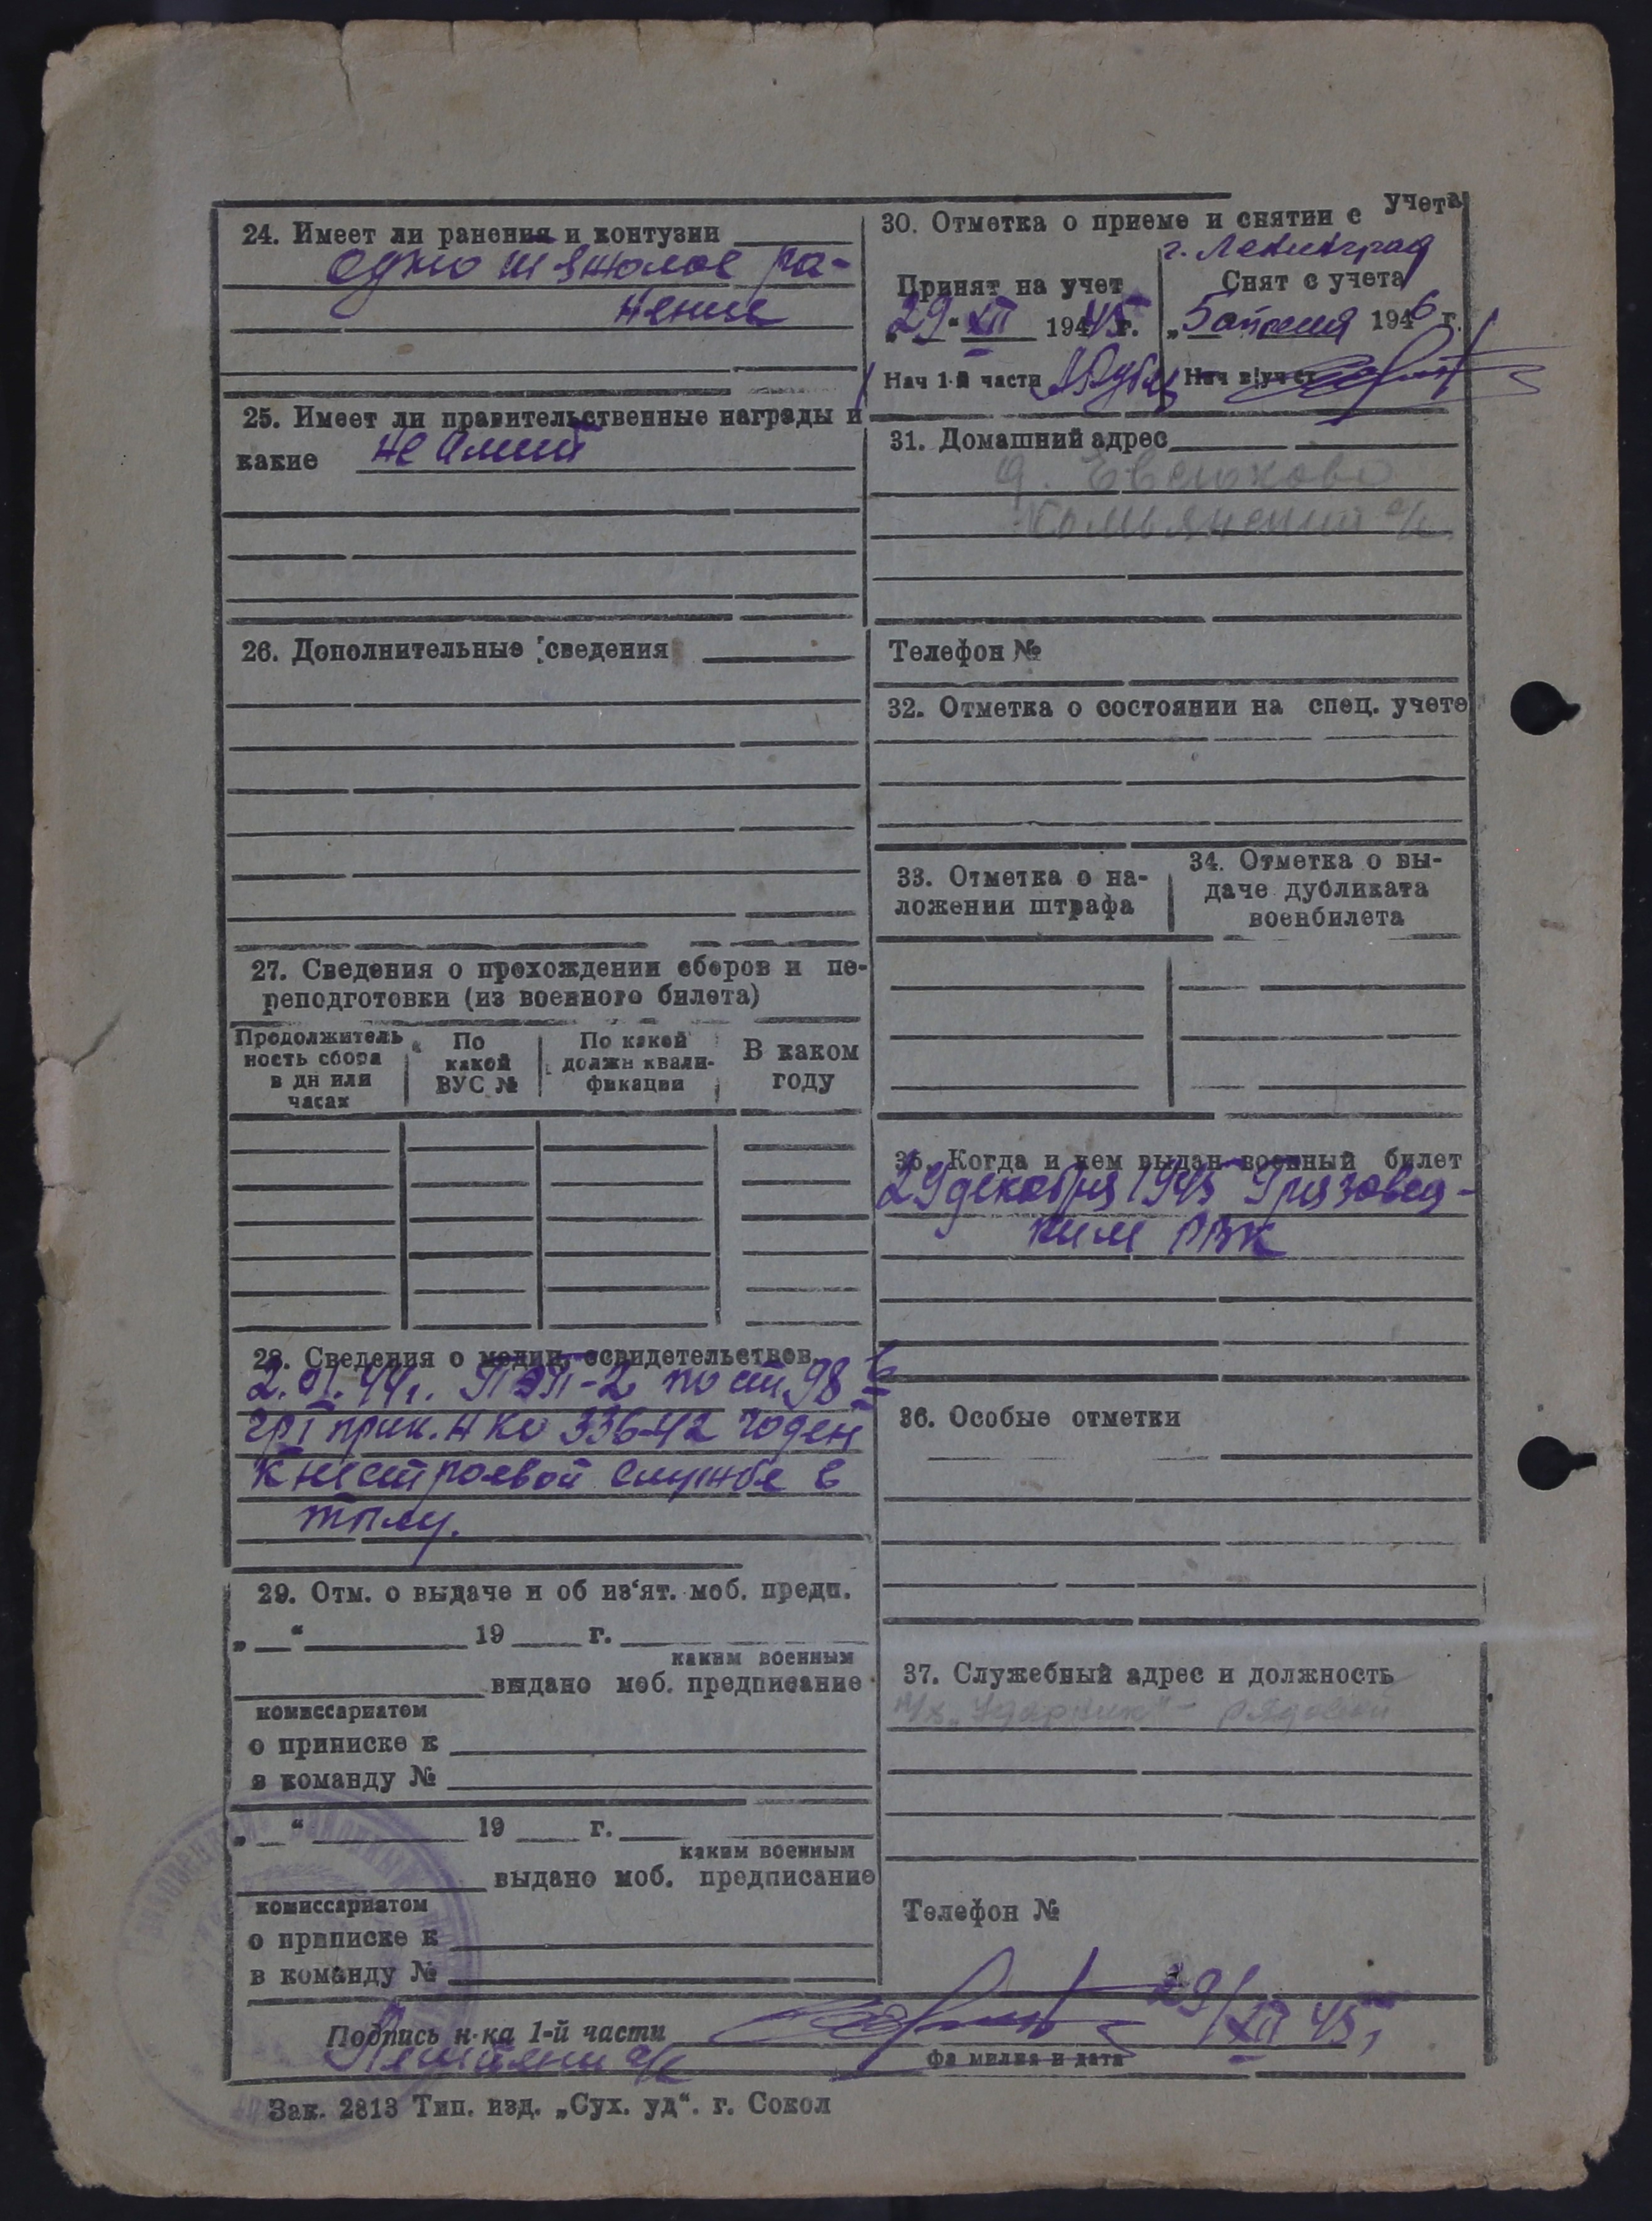 24. Имеет ли ранения и контузии
одно тяжолое ра-
нение
25. Имеет ли правительственные награды и
какие не имеит
26. Дополнительные сведения
27. Сведения о прохождении сборов и пе-
реподготовки (из военного билета)
Продолжитель
ность сбора
в дн или
часах
По
какой
ВУС №
По какой
должн квали-
фикации
В каком
году
28. Сведения о медиц. освидетельствов.
2.VI.44г. ПЭП-2 по ст. 98 б
гр I прик. НКО 336-42 годен
к нестроевой службе в
тылу.
29. Отм. о выдаче и об из‘ят. моб. предп.
„ “ 19 г.
каким военным
выдано моб. предписание
комиссариатом
о приписке к
в команду №
„ “ 19 г.
каким военным
выдано моб. предписание
комиссариатом
о приписке к
в команду №
30. Отметка о приеме и снятии с учета
г. Ленинград
Принят на учет
„29“ XII 1945 г.
Нач 1-й части
Снят с учета
„5 апреля 1946 г.
Нач в/учет
31. Домашний адрес
д. Евсюково
с/с
Телефон №
32. Отметка о состоянии на спец. учете
33. Отметка о на-
ложении штрафа
34. Отметка о вы-
даче дубликата
военбилета
35. Когда и кем выдан военный билет
29 декабря 1945 Грязовец-
ким РВК
36. Особые отметки
37. Служебный адрес и должность
к/х „Ударник“ - рядовой
Телефон №
Подпись н-ка 1-й части 29/XII 45,
фамилия и дата
с/с
Зак. 2813 Тип. изд. „Сух. уд“. г. Сокол